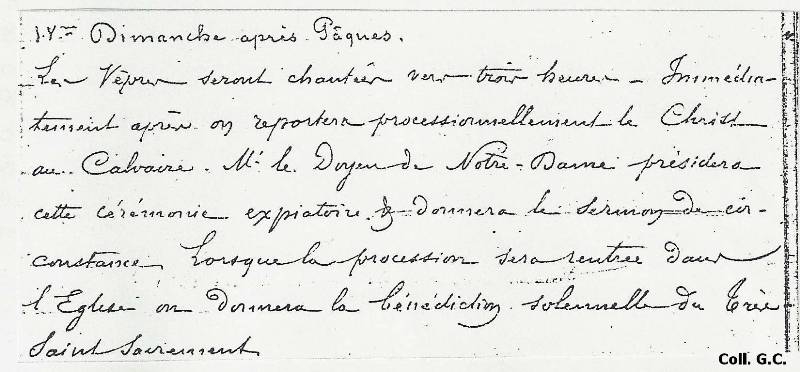 IVme Dimanche après Pâques.
Les Vêpres seront chantées vers trois heures - Immédia-
tement après on reportera processionnellement le Christ
au Calvaire. Mr. le Doyen de Notre-Dame présidera
cette cérémonie expiatoire & donnera le sermon de cir-
constance. Lorsque la procession sera rentrée dans
l'Eglise on donnera la bénédiction solennelle du Très
Saint Sacrement
Coll. G.C.